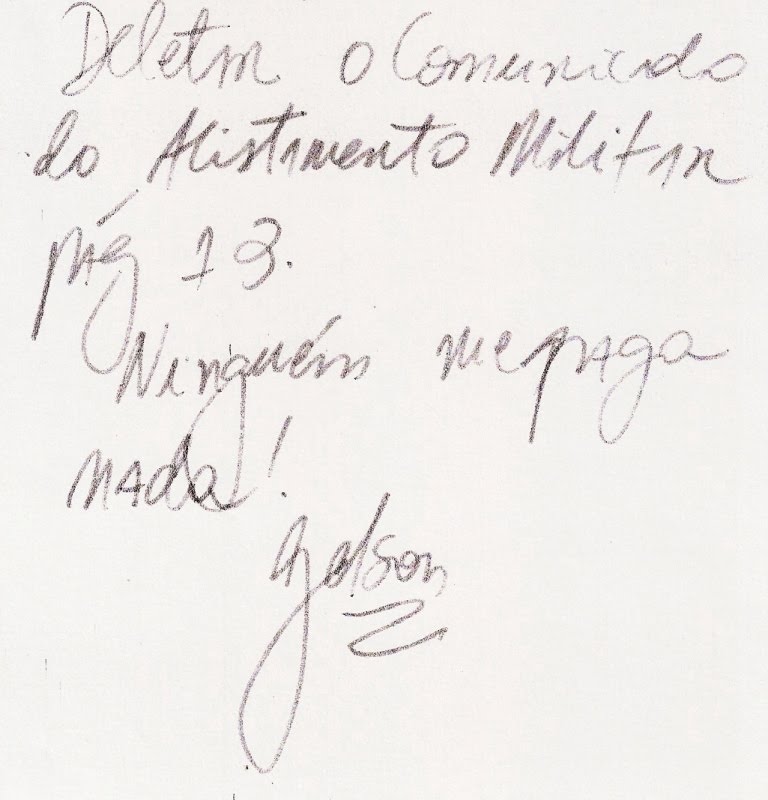 Deletar o Comunicado
do Alistamento Militar
pág 13.
Ninguém me paga
nada!
Gelson